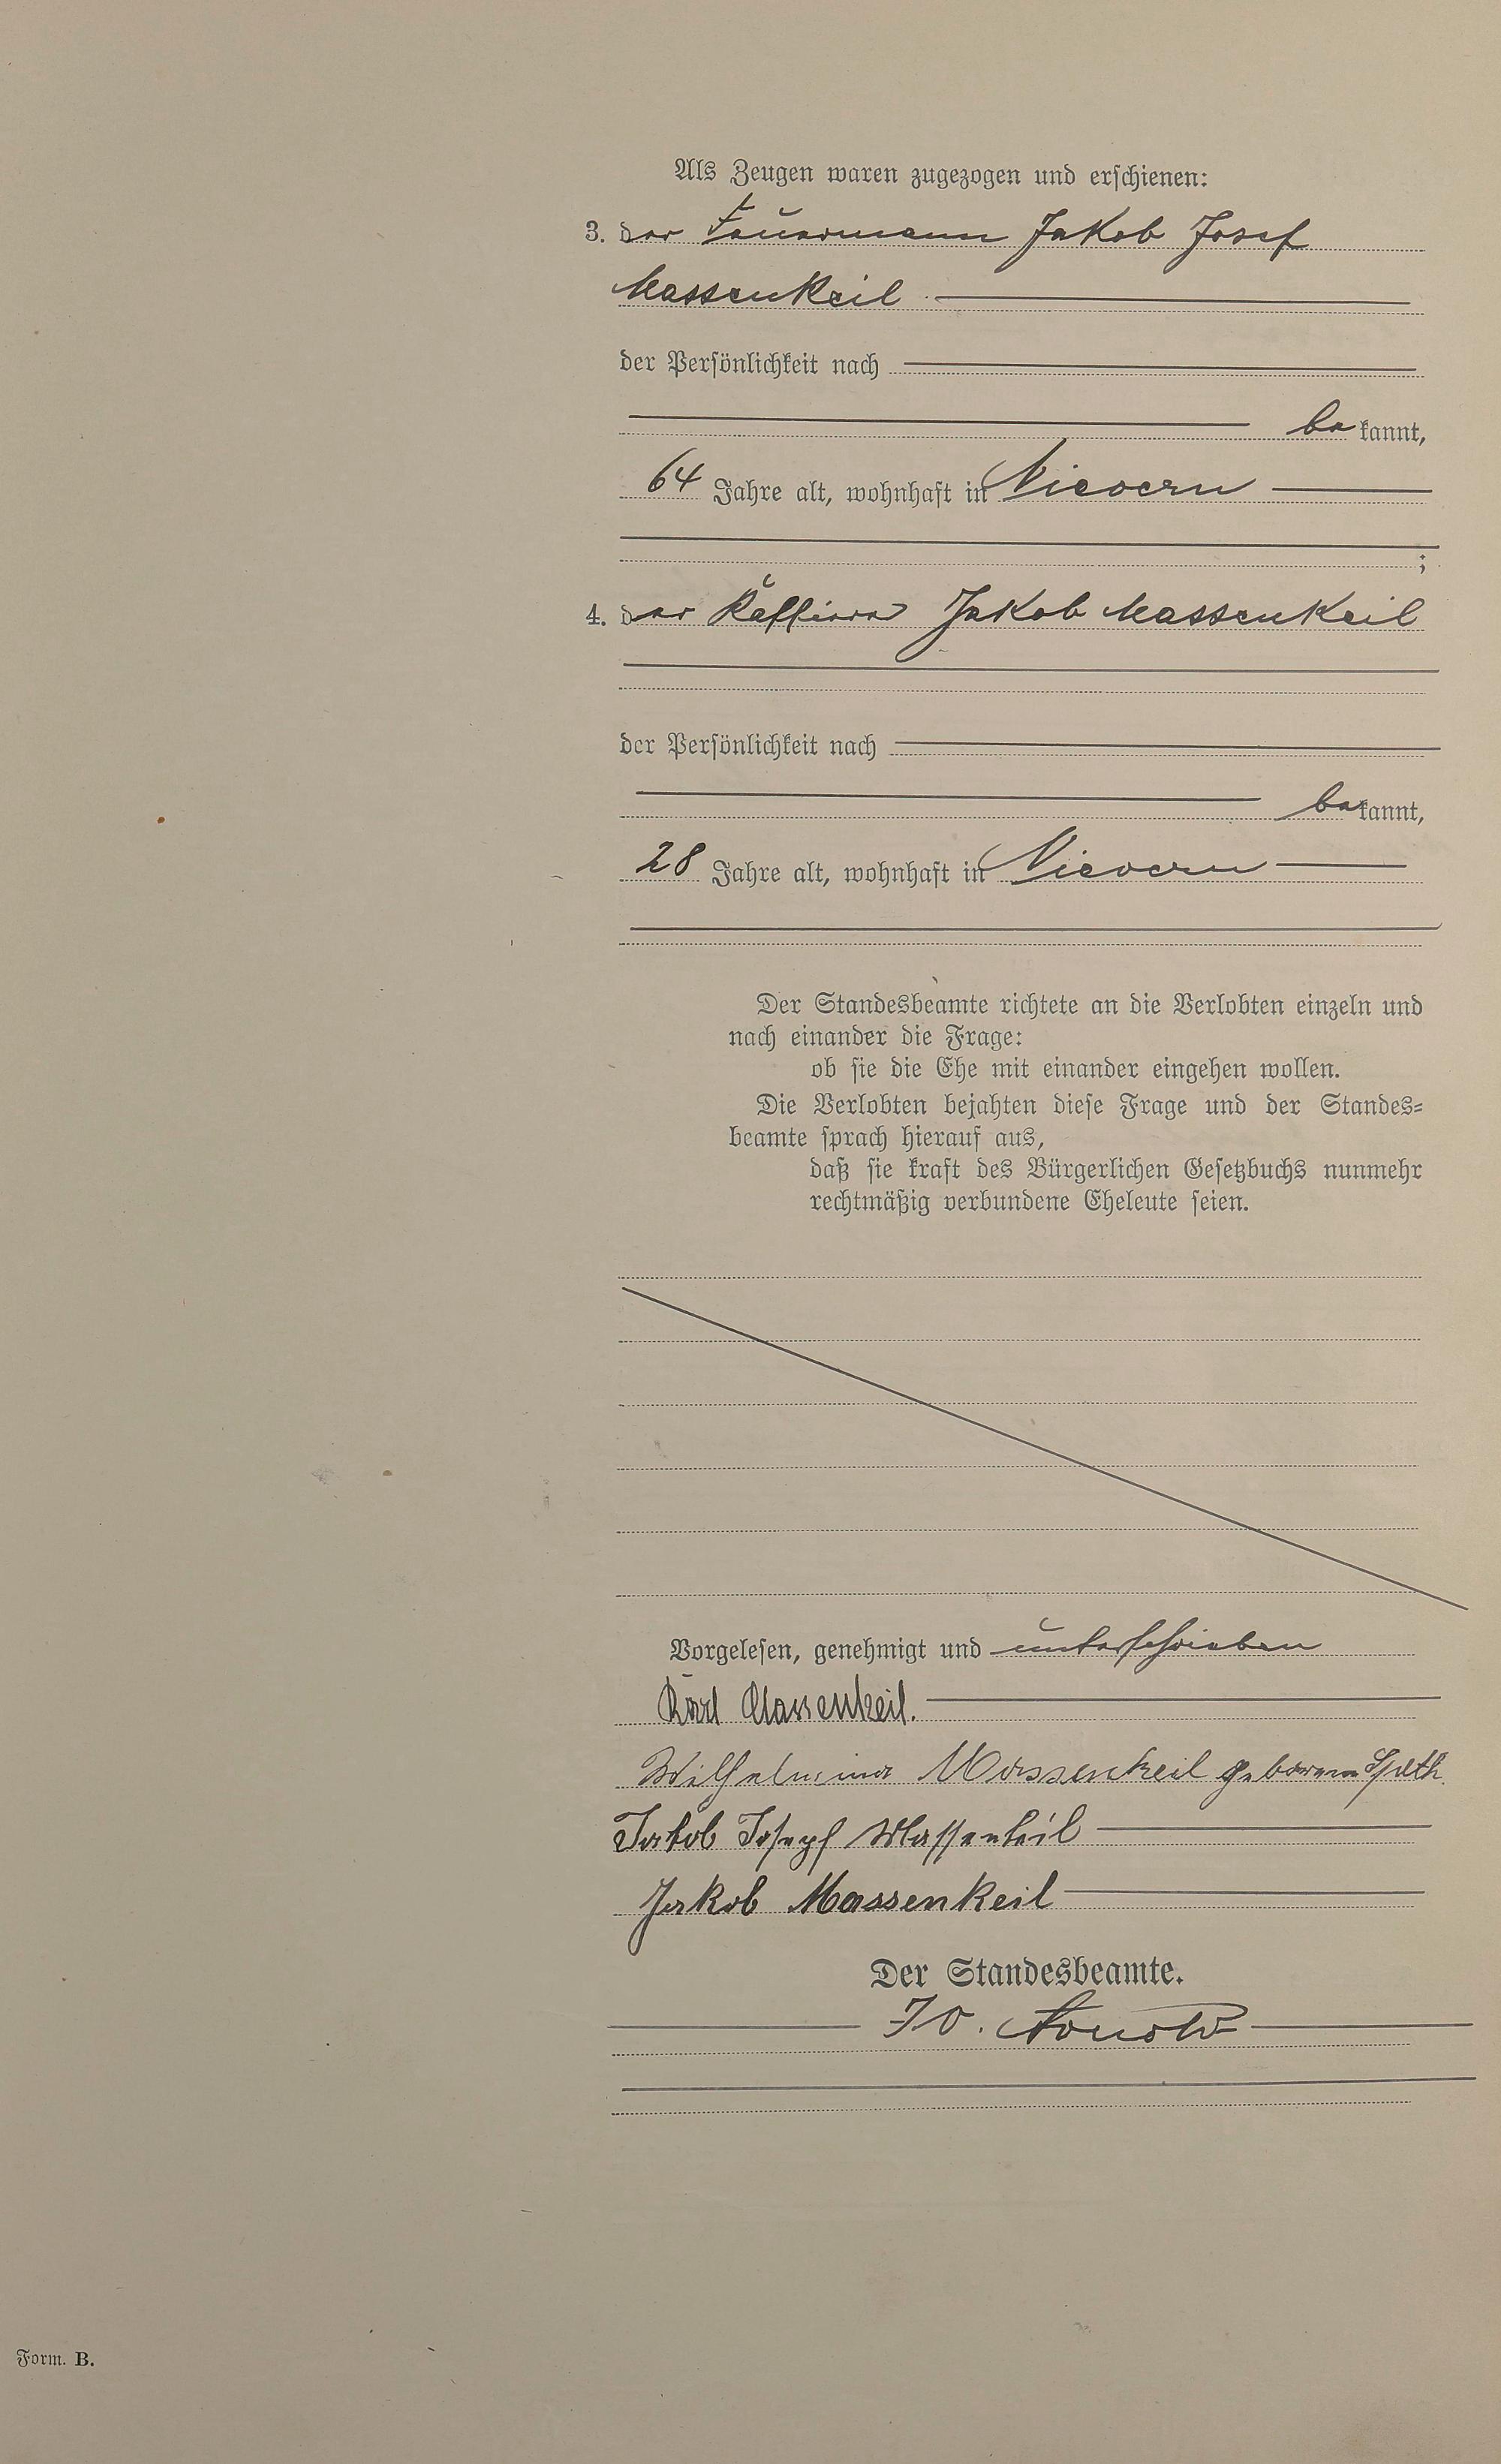 Als Zeugen waren zugezogen und erschienen:
3. der Feuermann Jakob Josef
Massenkeil
der Persönlichkeit nach
be kannt,
64 Jahre alt, wohnhaft in Nievern
;
4. der Jakob Massenkeil
der Persönlichkeit nach
be kannt,
28 Jahre alt, wohnhaft in Nievern
Der Standesbeamte richtete an die Verlobten einzeln und
nach einander die Frage:
ob sie die Ehe mit einander eingehen wollen.
Die Verlobten bejahten diese Frage und der Standes-
beamte sprach hierauf aus,
daß sie kraft des Bürgerlichen Gesetzbuchs nunmehr
rechtmäßig verbundene Eheleute seien.
Vorgelesen, genehmigt und unterschrieben
Karl Massenkeil.
Wilhelmina Massenkeil geborene Späth
Jakob Joseph Massenkeil
Jakob Massenkeil
Der Standesbeamte.
Form. B.